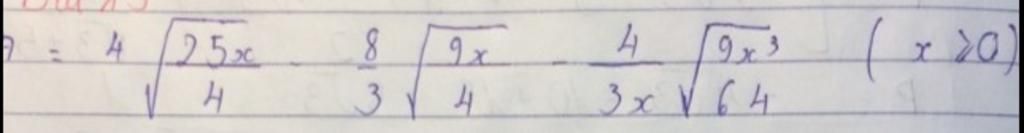 = 4 √(25x/4) - 8/3 √(9x/4) - 4/3x √(9x³/64) ( x ⩾0)